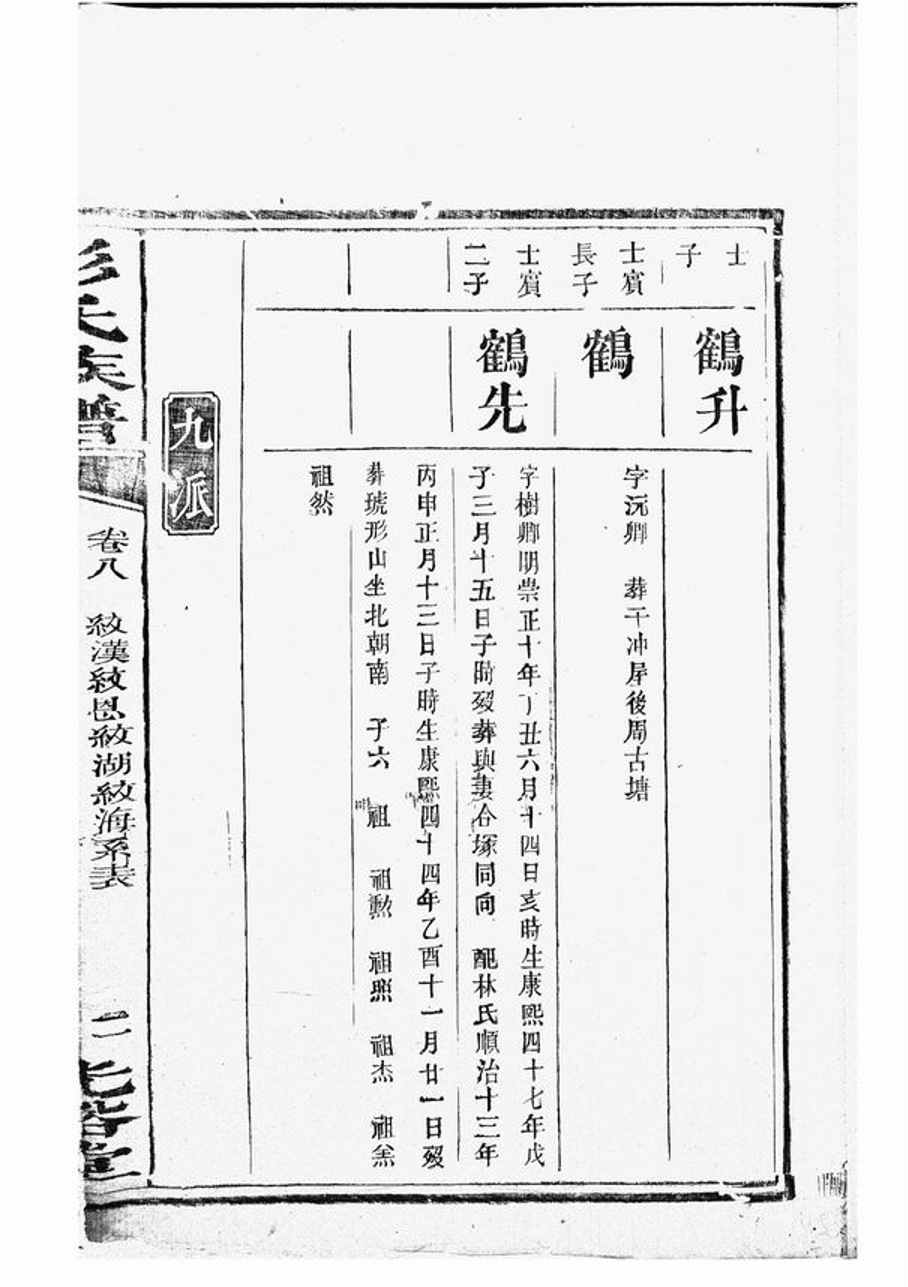 士
子
鶴升
士賔
長子
鶴
字沅卿　葬干冲屋後周古塘
士賔
二子
鶴先
字樹卿明崇正十年丁丑六月十四日亥時生康熙四十七年戊
子三月十五日子時歿葬與妻合塚同向　配林氏順治十三年
丙申正月十三日子時生康熙四十四年乙酉十一月廿一日歿
葬琥形山坐北朝南　子六　祖　祖勲　祖照　祖杰　祖
祖然
九派
彭氏族譜
卷八　紋漢紋恩紋湖紋海系表
二